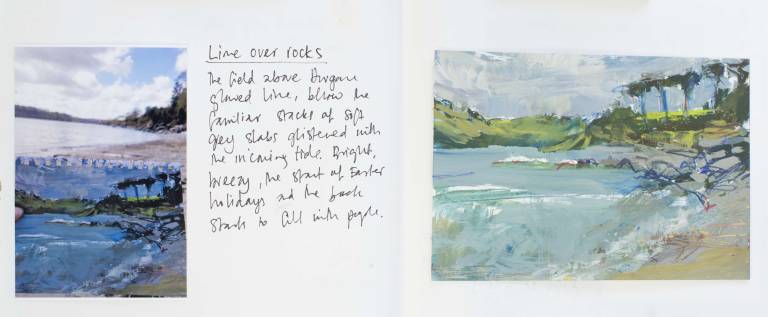 Lime over rocks
The field above Durgan
glowed lime, below the
familiar stacks of soft
grey slabs glistened with
the incoming tide. Bright,
breezy, the start of Easter
holidays and the beach
starts to fill with people.